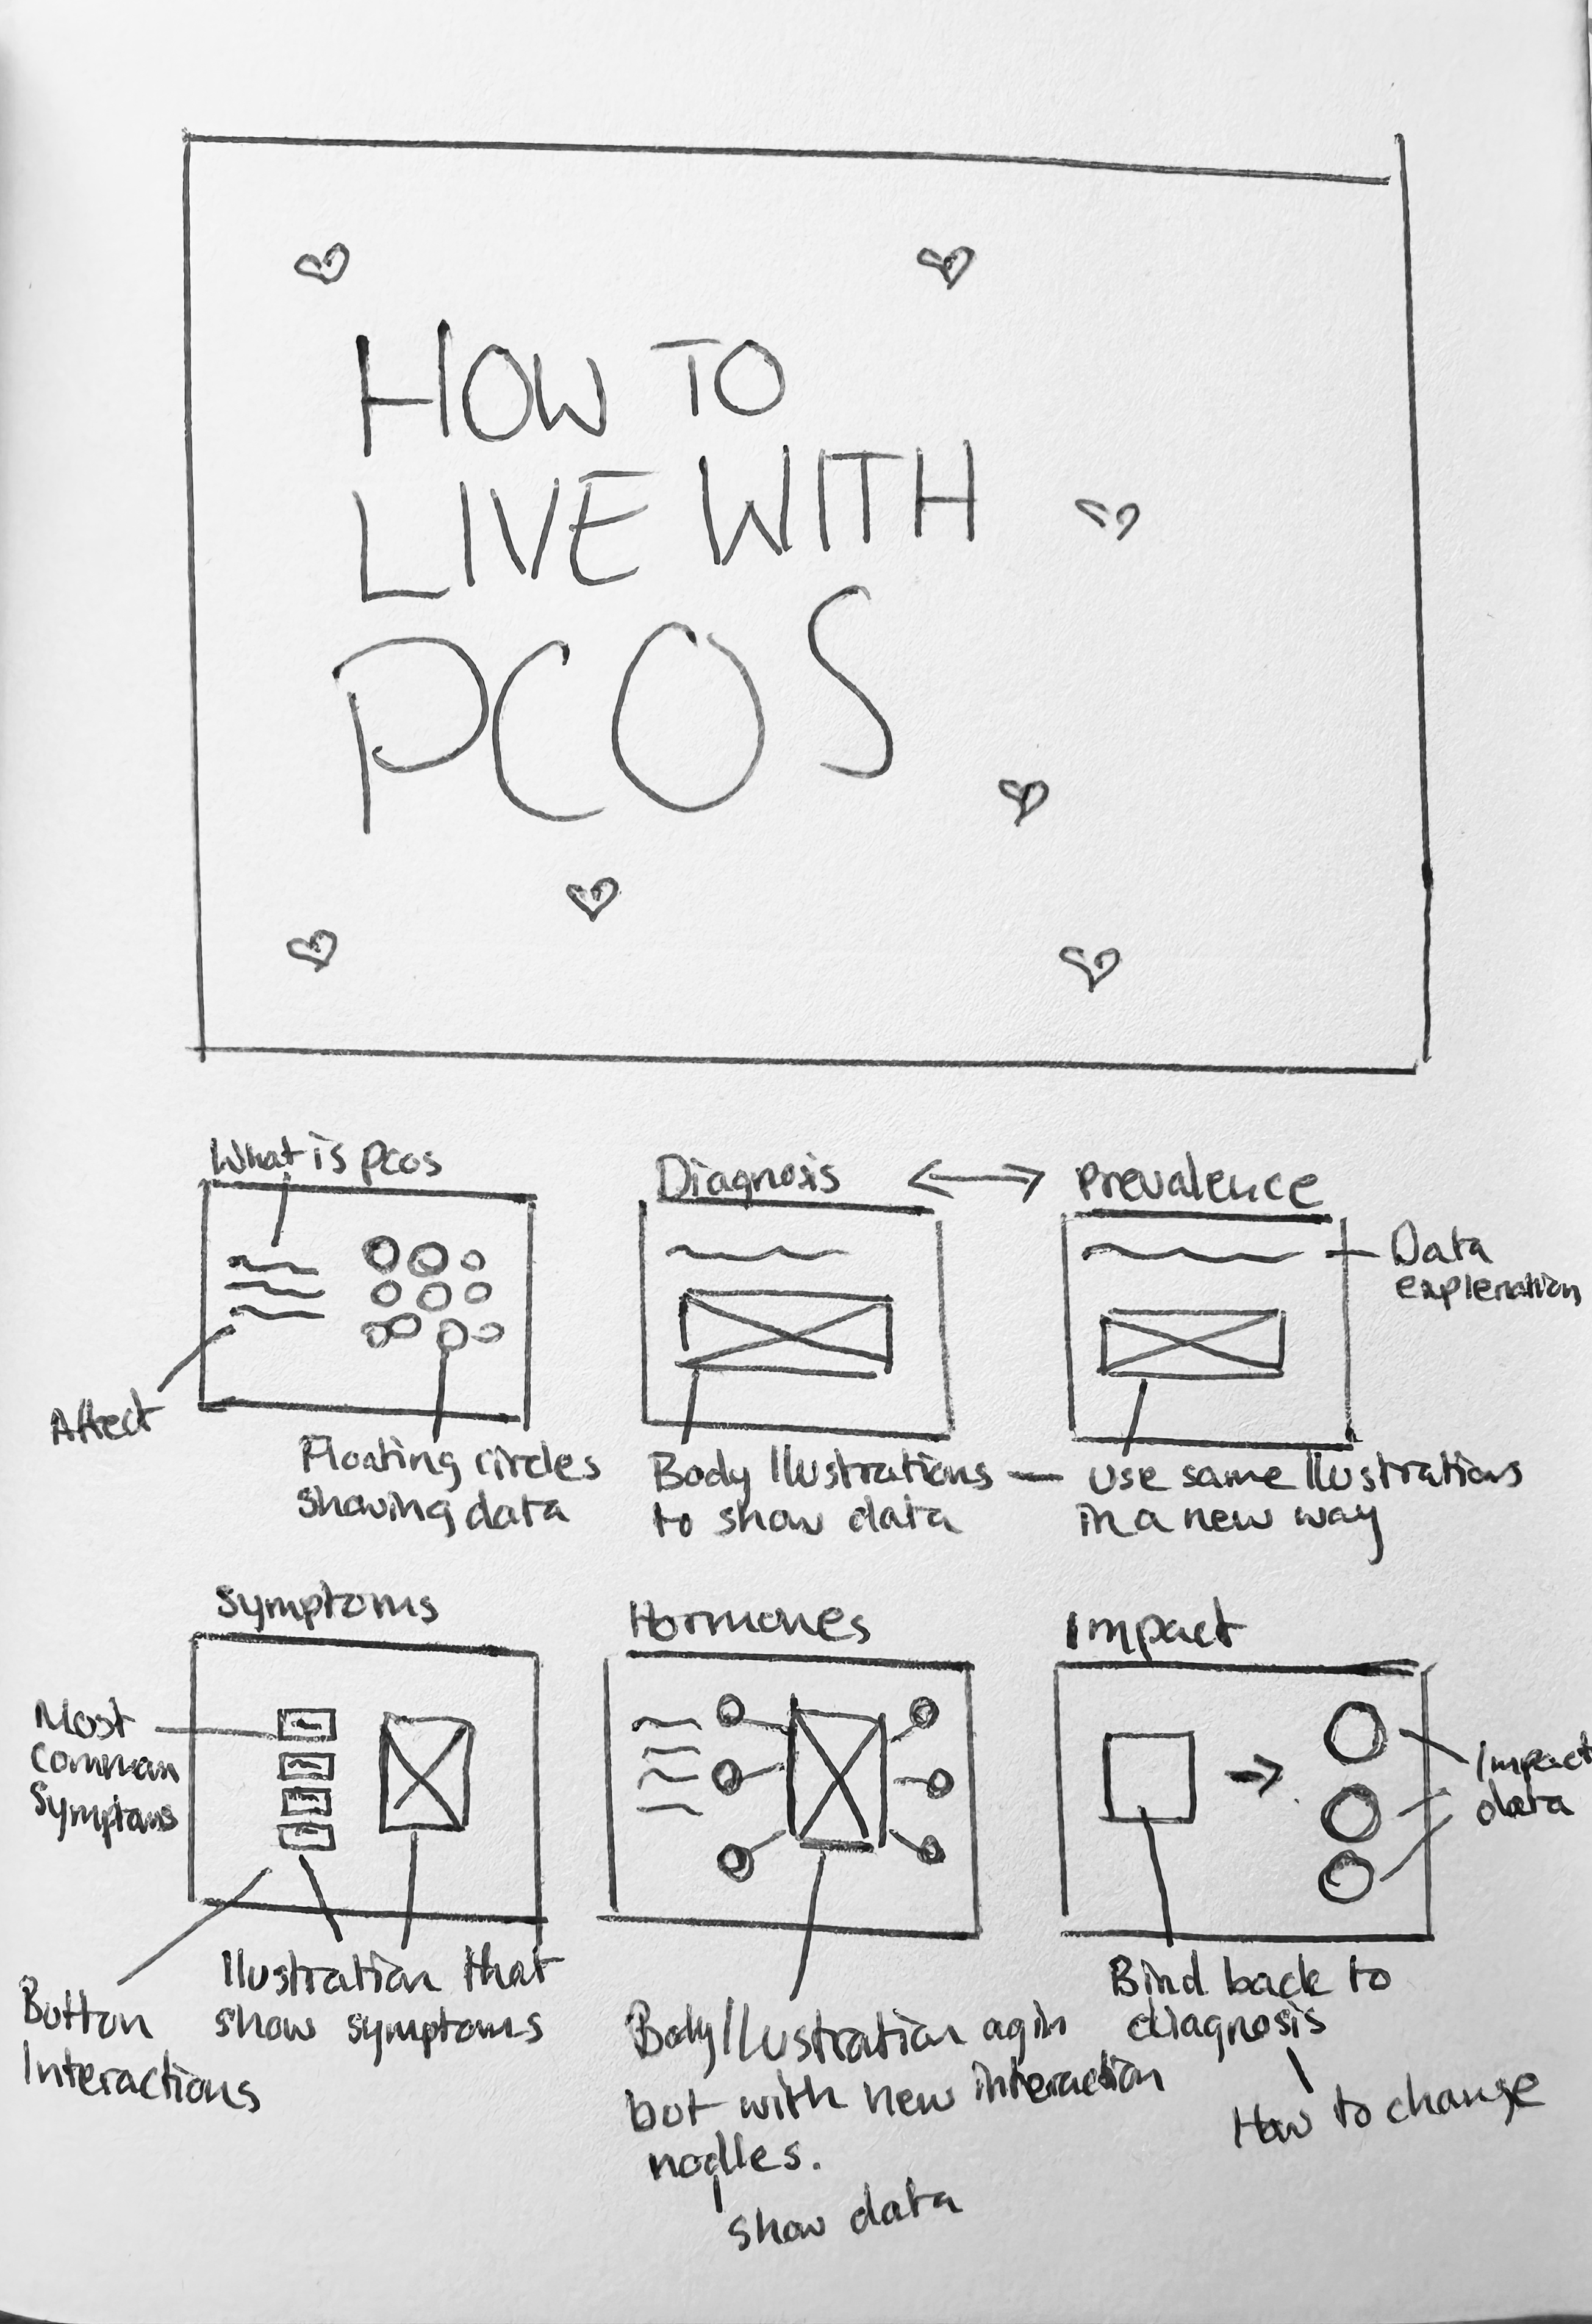 HOW TO
LIVE WITH
PCOS
What is pcos
Affect
Floating circles
showing data
Diagnosis
Body Ilustrations
to show data
Prevalence
Data
explenation
use same Ilustrations
in a new way
Symptoms
Most
Common
Symptoms
Button
Interactions
Ilustration that
show symptoms
Hormones
Body Ilustration agin
but with new interaction
nodles.
show data
Impact
Impact
data
Bind back to
diagnosis
How to change